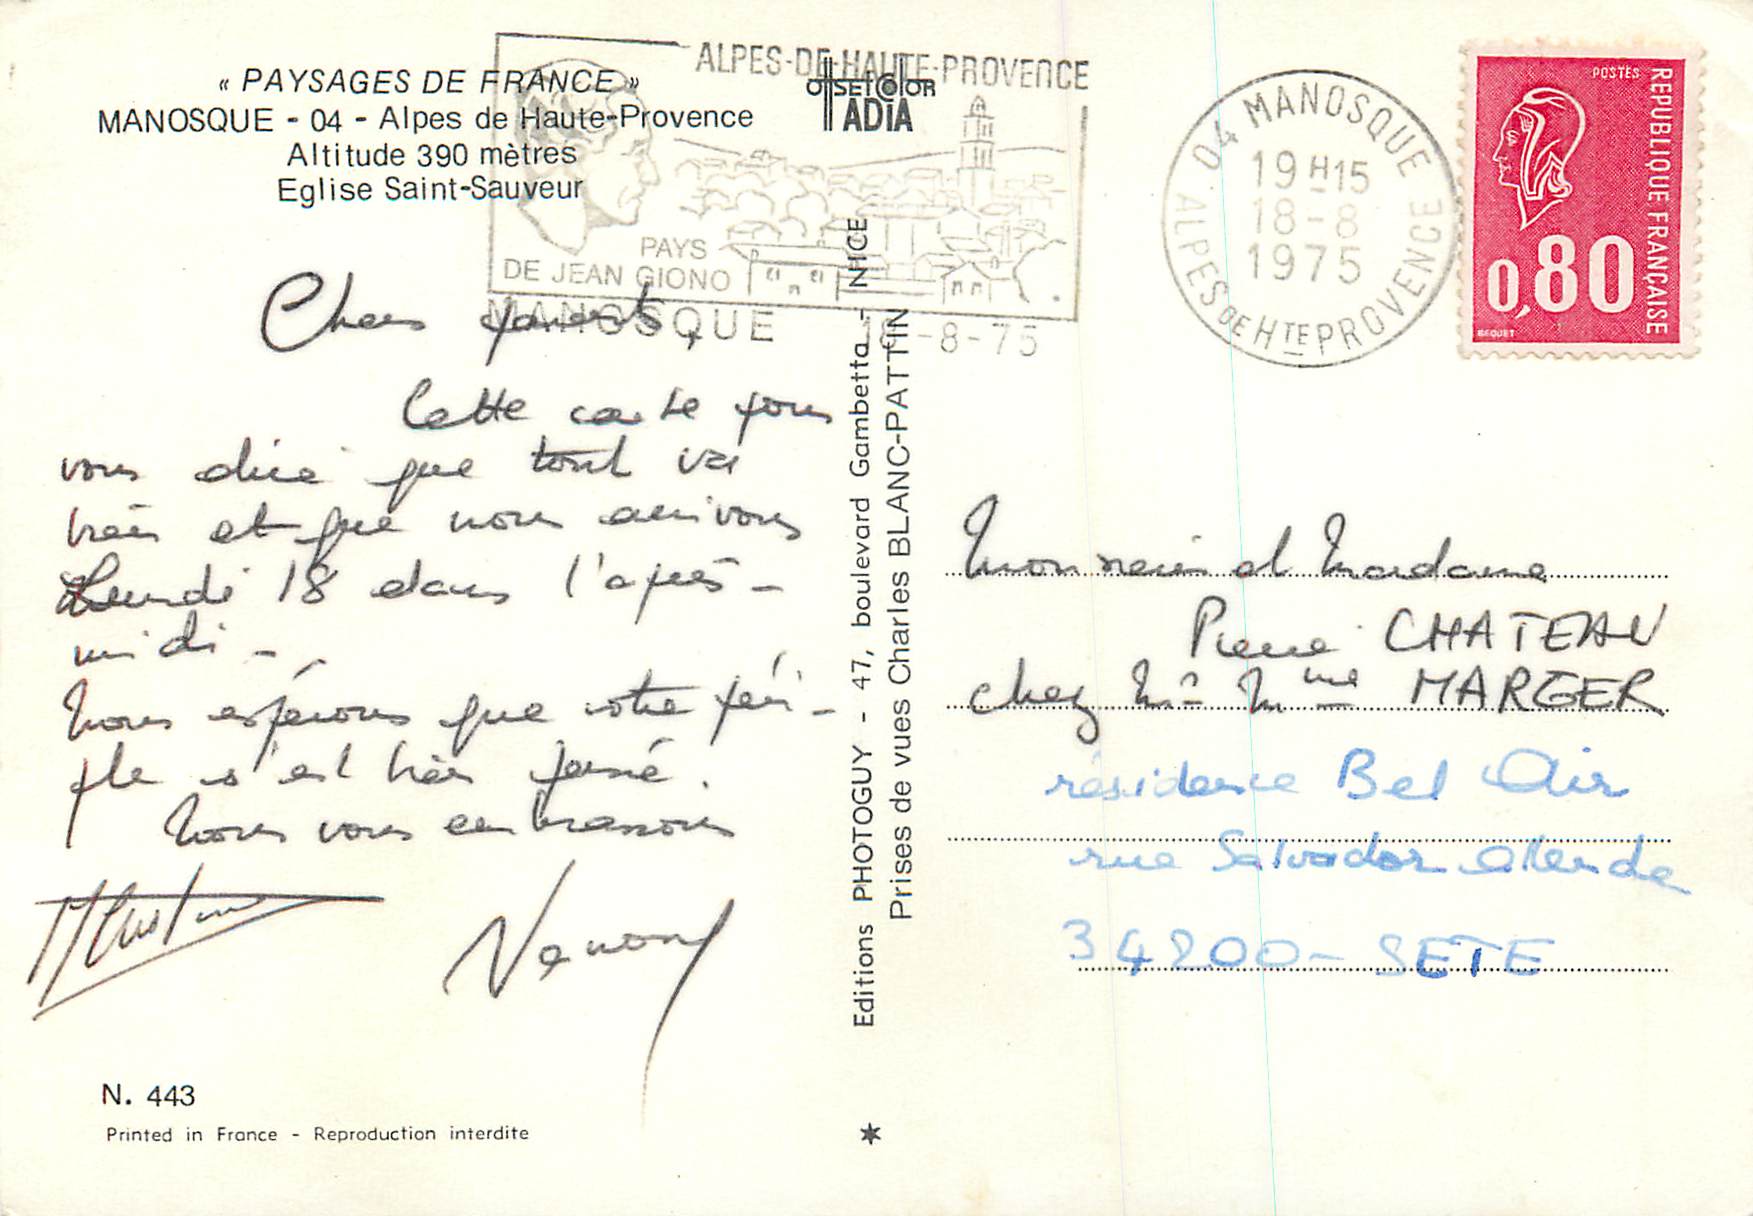 « PAYSAGES DE FRANCE »
MANOSQUE - 04 - Alpes de Haute-Provence
Altitude 390 mètres
Eglise Saint-Sauveur
OFFSETCOLOR
ADIA
ALPES-DE-HAUTE-PROVENCE
PAYS
DE JEAN GIONO
MANOSQUE 18-8-75
04 MANOSQUE
19H15
18-8
1975
ALPES DE HTE PROVENCE
POSTES
REPUBLIQUE FRANÇAISE
0,80
BEQUET
Chers parents,
Cette carte pour
vous dire que tout va
bien et que nous arrivons
Lundi 18 dans l'après-
midi -
Nous espérons que votre péri-
ple s'est bien passé.
Nous vous embrassons
N. 443
Printed in France - Reproduction interdite
Editions PHOTOGUY - 47, boulevard Gambetta - NICE
Prises de vues Charles BLANC-PATTIN
Monsieur et Madame
Pierre CHATEAU
chez Mr Mme MARGER
résidence Bel Air
rue Salvador allende
34200 - SETE